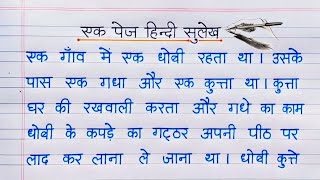 एक पेज हिन्दी सुलेख
एक गाँव में एक धोबी रहता था। उसके
पास एक गधा और एक कुत्ता था। कुत्ता
घर की रखवाली करता और गधे का काम
धोबी के कपड़े का गट्ठर अपनी पीठ पर
लाद कर लाना ले जाना था। धोबी कुत्ते